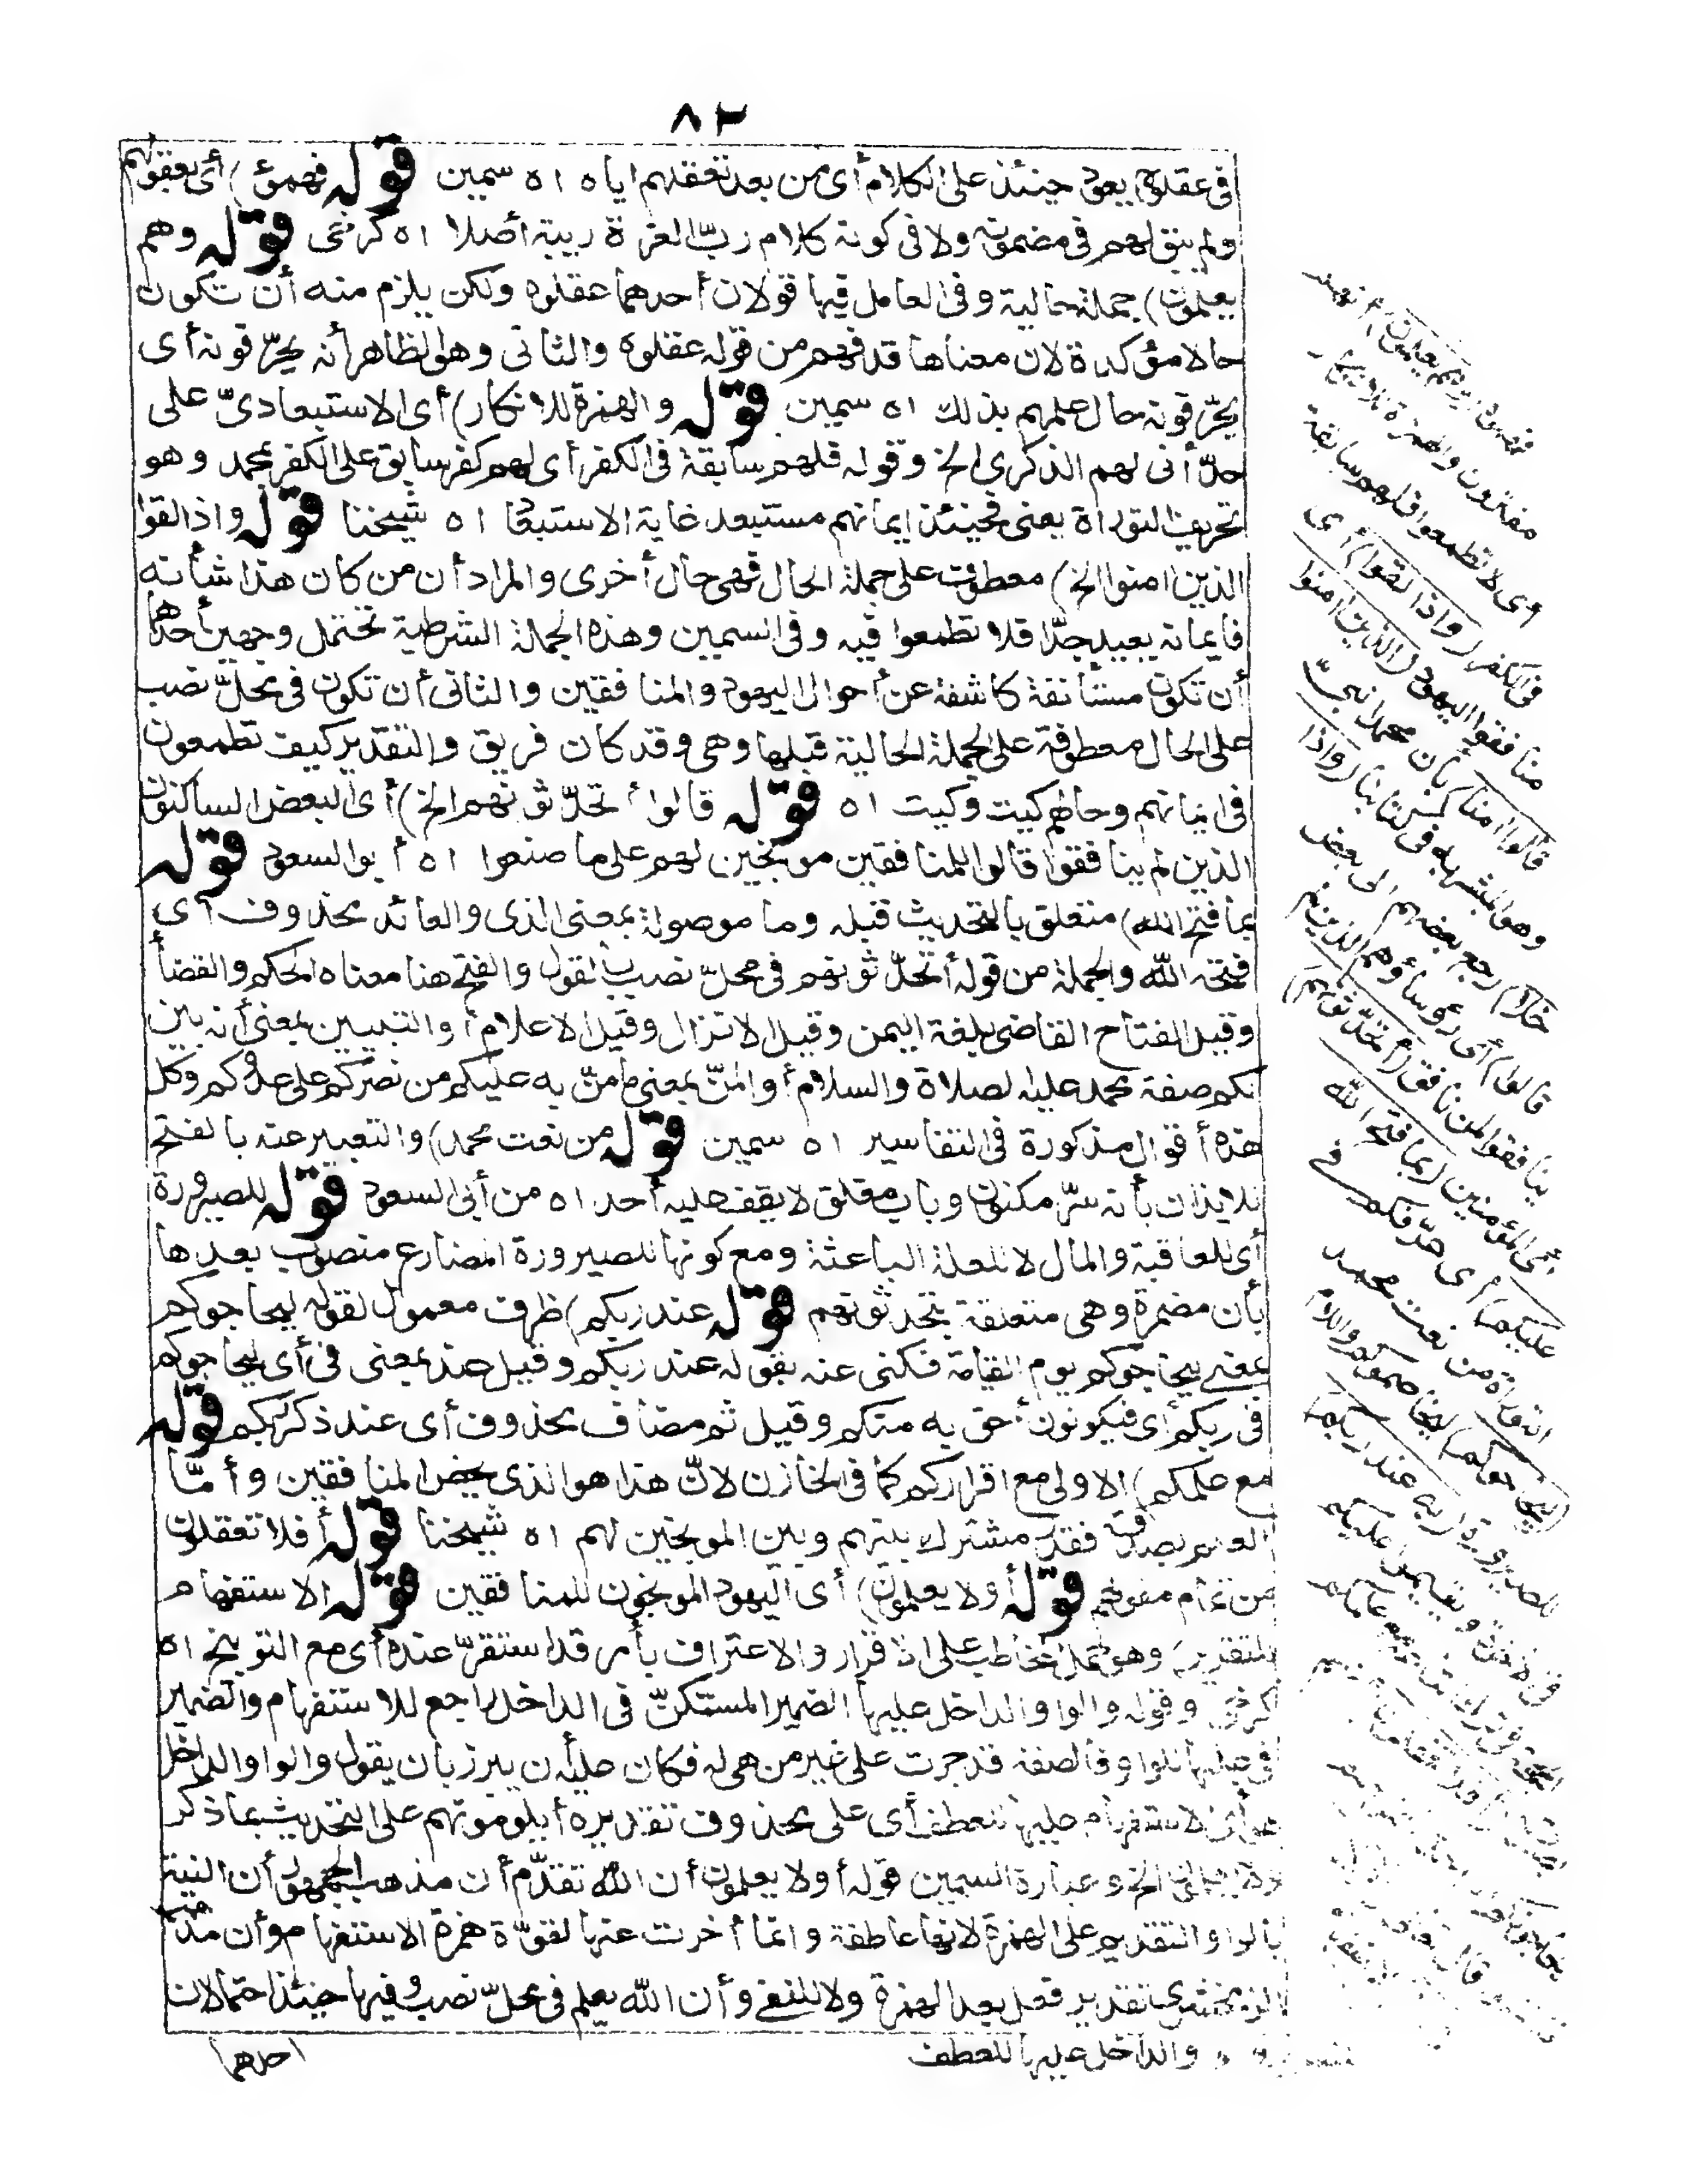 ٨٢
فى عقلوه يعود حينئذ على الكلام أى من بعد تعقلهم اياه اه سمين قوله فهموه) أى بعقولهم
ولم يبق لهم فى مضمونه ولا فى كونه كلام ربّ العزة ريبة أصلا اه كرخى قوله وهم
يعلمون) جملة حالية وفى العامل فيها قولان أحدهما عقلوه ولكن يلزم منه أن تكون
حالا مؤكدة لان معناها قد فهم من قوله عقلوه والثانى وهو الظاهر أنه يحرّفونه أى
يحرّفونه حال علمهم بذلك اه سمين قوله والهمزة للانكار) أى الاستبعادىّ على
حدّ أنى لهم الذكرى الخ وقوله فلهم سابقة فى الكفر أى لهم كفر سابق على الكفر بمحمد وهو
تحريف التوراة يعنى فحينئذ ايمانهم مستبعد غاية الاستبعاد اه شيخنا قوله واذا لقوا
الذين امنوا الخ) معطوف على جملة الحال فهى حال أخرى والمراد أن من كان هذا شأنه
فايمانه بعيد جدّا فلا تطمعوا فيه وفى السمين وهذه الجملة الشرطية تحتمل وجهين أحدهما
أن تكون مستأنفة كاشفة عن أحوال اليهود والمنافقين والثانى أن تكون فى محلّ نصب
على الحال معطوفة على الجملة الحالية قبلها وهى وقد كان فريق والتقدير كيف تطمعون
فى ايمانهم وحالهم كيت وكيت اه قوله قالوا أتحدّثونهم الخ) أى البعض الساكتون
الذين لم ينافقوا قالوا للمنافقين موبخين لهم على ما صنعوا اه أبو السعود قوله
بما فتح الله) متعلق بالتحديث قبله وما موصولة بمعنى الذى والعائد محذوف أى
فتحه الله والجملة من قوله أتحدّثونهم فى محلّ نصب بالقول والفتح هنا معناه الحكم والقضاء
وقيل الفتاح القاضى بلغة اليمن وقيل الانزال وقيل الاعلام أو التبيين بمعنى أنه بين
لكم صفة محمد عليه الصلاة والسلام أو المنّ بمعنى ما منّ به عليكم من نصركم على عدوّكم وكل
هذه أقوال مذكورة فى التفاسير اه سمين قوله من نعت محمد) والتعبير عنه بالفتح
للايذان بأنه سرّ مكنون وباب مغلق لا يقف عليه أحد اه من أبى السعود قوله للصيرورة
أى للعاقبة والمال لا للعلة الباعثة ومع كونها للصيرورة المضارع منصوب بعدها
بأن مضمرة وهى متعلقة بتحدثونهم قوله عند ربكم) ظرف معمول لقوله ليحاجوكم
بمعنى ليحاجوكم يوم القيامة فكنى عنه بقوله عند ربكم وقيل عند بمعنى فى أى ليحاجوكم
فى ربكم أى فيكونون أحق به منكم وقيل ثم مضاف محذوف أى عند ذكر ربكم قوله
مع علمكم) الاولى مع اقراركم كما فى الخازن لانّ هذا هو الذى يخص المنافقين وأمّا
العلم بصدقه فقدر مشترك بينهم وبين الموبخين لهم اه شيخنا قوله أفلا تعقلون
من تمام مقولهم قوله أولا يعلمون) أى اليهود الموبخون للمنافقين قوله الاستفهام
للتقرير) وهو حمل المخاطب على الاقرار والاعتراف بأمر قد استقرّ عنده أى مع التوبيخ اه
كرخى وقوله والواو الداخل عليها الضمير المستكنّ فى الداخل راجع للاستفهام والضمير
فى عليها للواو فالصفة قد جرت على غير من هى له فكان عليه أن يبرز بان يقول والواو الداخل
هو أى الاستفهام عليها للعطف أى على محذوف تقديره أيلومونهم على التحديث بما ذكر
ولا يعلمون الخ وعبارة السمين قوله أولا يعلمون أن الله تقدّم أن مذهب الجمهور أن النية
بالواو التقديم على الهمزة لانها عاطفة وانما أخرت عنها لقوّة همزة الاستفهام وأن مذهب
الزمخشرى تقدير فعل بعد الهمزة ولا للنفى وأن الله يعلم فى محلّ نصب وفيها حينئذ احتمالان
احدهما
والداخل عليها للعطف
مفترون والهمزة للانكار
أى لا تطمعوا فلهم سابقة
فى الكفر (واذا لقوا) أى
منافقوا اليهود (الذين امنوا
قالوا امنا) بأن محمدا نبىّ
وهو المبشر به فى كتابنا (واذا
خلا) رجع بعضهم الى بعض
قالوا) أى رؤساؤهم الذين لم
ينافقوا لمن نافق (أتحدّثونهم)
أى المؤمنين (بما فتح الله
عليكم) أى عرّفكم فى
التوراة من نعت محمد
(به) عند ربكم)